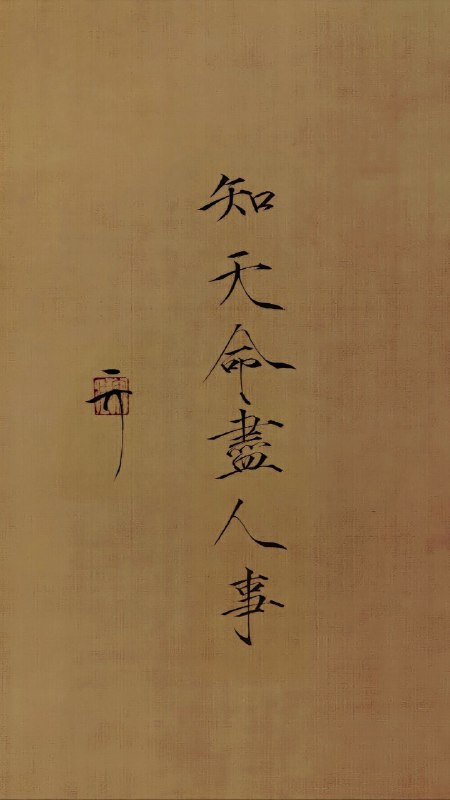 知天命盡人事